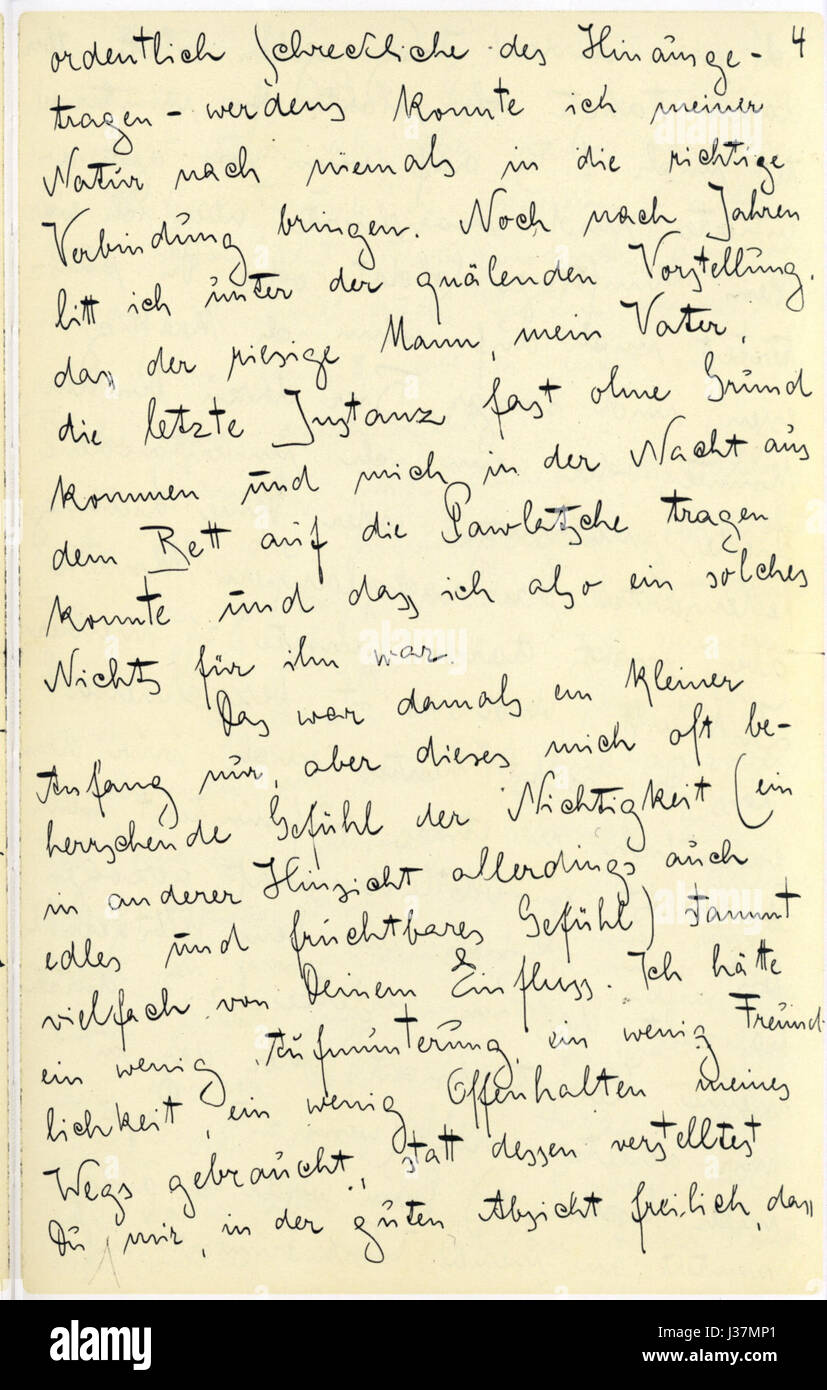 4
ordentlich Schreckliche des Hinausge-
tragen-werdens konnte ich meiner
Natur nach niemals in die richtige
Verbindung bringen. Noch nach Jahren
litt ich unter der quälenden Vorstellung,
dass der riesige Mann, mein Vater,
die letzte Instanz fast ohne Grund
kommen und mich in der Nacht aus
dem Bett auf die Pawlatsche tragen
konnte und dass ich also ein solches
Nichts für ihn war.
Das war damals ein kleiner
Anfang nur, aber dieses mich oft be-
herrschende Gefühl der Nichtigkeit (ein
in anderer Hinsicht allerdings auch
edles und fruchtbares Gefühl) stammt
vielfach von Deinem Einfluss. Ich hätte
ein wenig Aufmunterung, ein wenig Freund-
lichkeit, ein wenig Offenhalten meines
Wegs gebraucht, statt dessen verstelltest
Du mir, in der guten Absicht freilich, dass
alamy
alamy stock photo
J37MP1
www.alamy.com